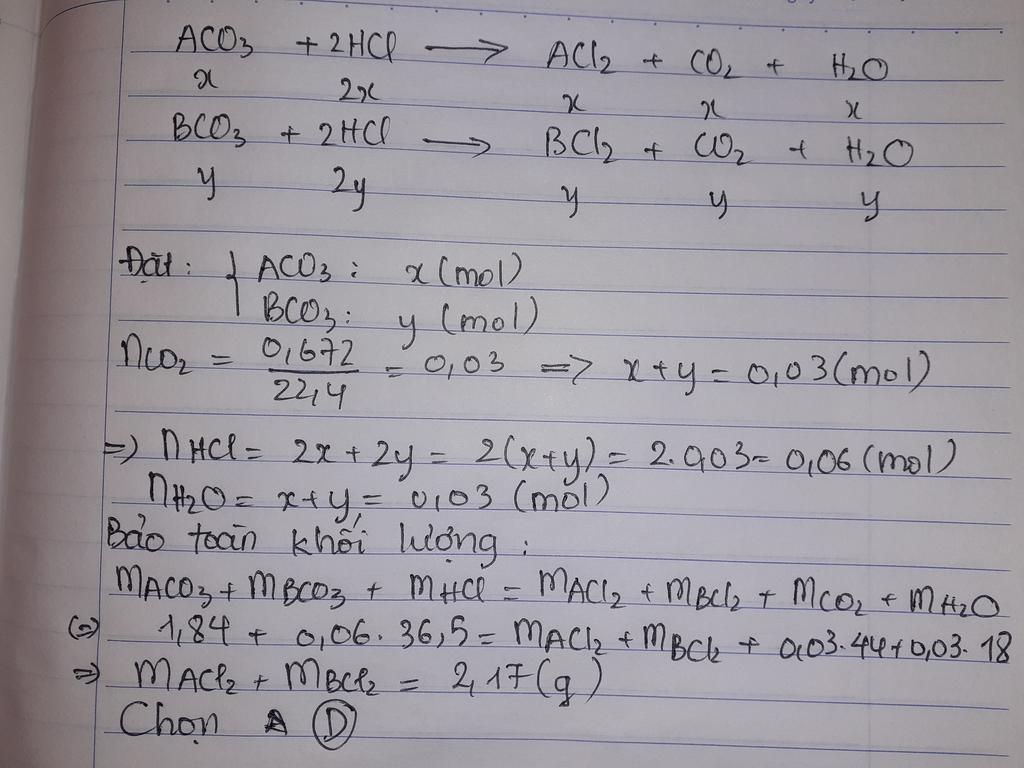 ACO3 + 2HCl → ACl2 + CO2 + H2O
x 2x x x x
BCO3 + 2HCl → BCl2 + CO2 + H2O
y 2y y y y
Đặt: { ACO3: x (mol)
BCO3: y (mol)
nCO2 = 0,672/22,4 = 0,03 => x+y = 0,03 (mol)
=> nHCl = 2x + 2y = 2(x+y) = 2.0,03 = 0,06 (mol)
nH2O = x+y = 0,03 (mol)
Bảo toàn khối lượng:
mACO3 + mBCO3 + mHCl = mACl2 + mBCl2 + mCO2 + mH2O
(=) 1,84 + 0,06.36,5 = mACl2 + mBCl2 + 0,03.44 + 0,03.18
=> mACl2 + mBCl2 = 2,17 (g)
Chọn A D